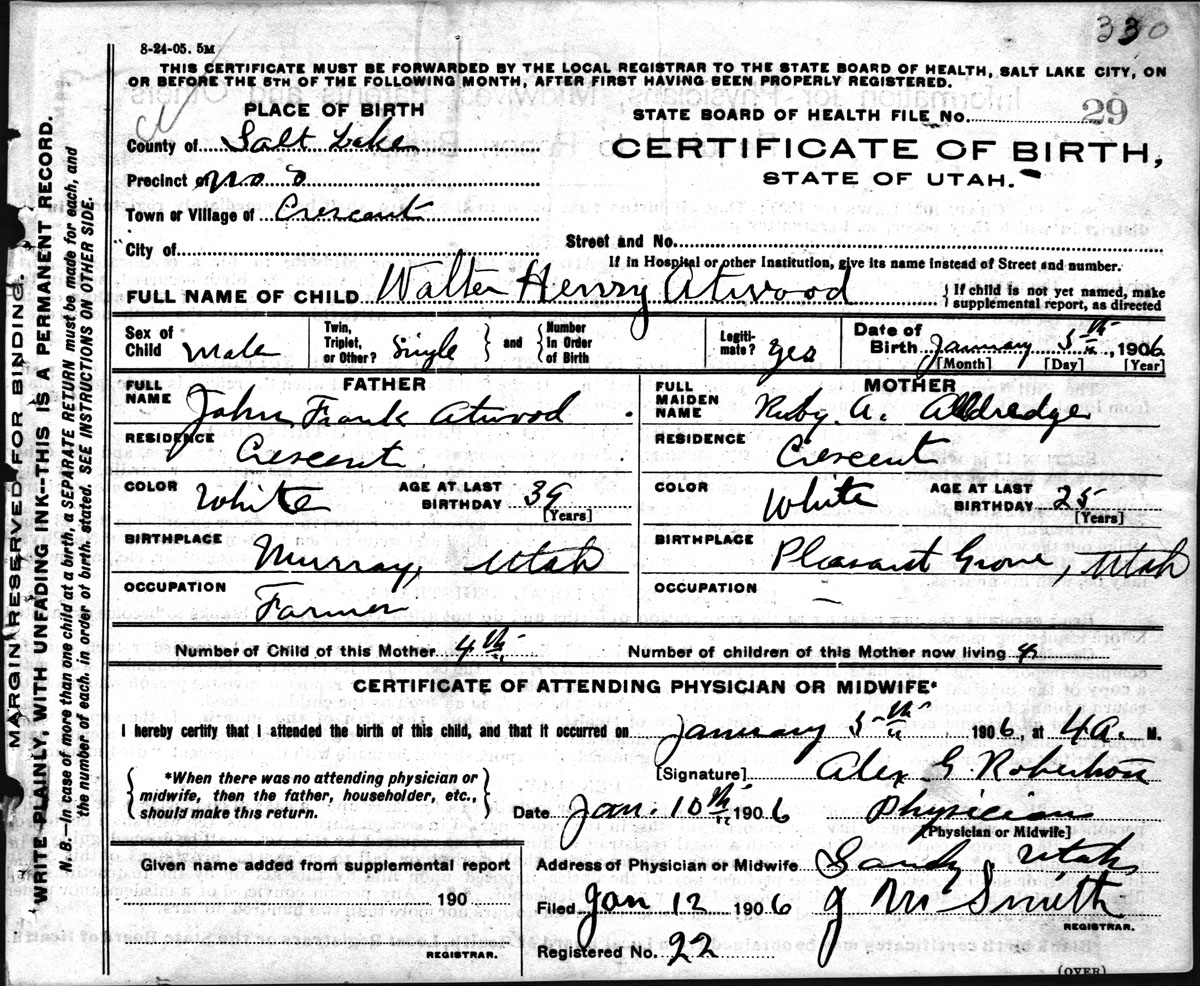 330
8-24-05. 5M
THIS CERTIFICATE MUST BE FORWARDED BY THE LOCAL REGISTRAR TO THE STATE BOARD OF HEALTH, SALT LAKE CITY, ON
OR BEFORE THE 5TH OF THE FOLLOWING MONTH, AFTER FIRST HAVING BEEN PROPERLY REGISTERED.
PLACE OF BIRTH
STATE BOARD OF HEALTH FILE No. 29
County of Salt Lake
CERTIFICATE OF BIRTH,
STATE OF UTAH.
Precinct of No
Town or Village of Crescent
City of
Street and No.
If in Hospital or other Institution, give its name instead of Street and number.
FULL NAME OF CHILD Walter Henry Atwood
If child is not yet named, make
supplemental report, as directed
Sex of Child Male
Twin, Triplet, or Other? Single
and Number in Order of Birth
Legitimate? Yes
Date of Birth January 5th, 1906
[Month] [Day] [Year]
FATHER
FULL NAME John Frank Atwood
RESIDENCE Crescent
COLOR White
AGE AT LAST BIRTHDAY 39
[Years]
BIRTHPLACE Murray, Utah
OCCUPATION Farmer
MOTHER
FULL MAIDEN NAME Ruby A. Alldredge
RESIDENCE Crescent
COLOR White
AGE AT LAST BIRTHDAY 25
[Years]
BIRTHPLACE Pleasant Grove, Utah
OCCUPATION –
Number of Child of this Mother 4th
Number of children of this Mother now living 4
CERTIFICATE OF ATTENDING PHYSICIAN OR MIDWIFE*
I hereby certify that I attended the birth of this child, and that it occurred on January 5th 1906, at 4 A. M.
*When there was no attending physician or
midwife, then the father, householder, etc.,
should make this return.
[Signature] Alex G. Robertson
Date Jan. 10th 1906 Physician
[Physician or Midwife]
Given name added from supplemental report
190
REGISTRAR.
Address of Physician or Midwife Sandy, Utah
Filed Jan 12 1906 J M Smith
REGISTRAR.
Registered No. 22
(OVER)
MARGIN RESERVED FOR BINDING.
WRITE PLAINLY, WITH UNFADING INK--THIS IS A PERMANENT RECORD.
N. B.--In case of more than one child at a birth, a SEPARATE RETURN must be made for each, and
the number of each, in order of birth, stated. SEE INSTRUCTIONS ON OTHER SIDE.